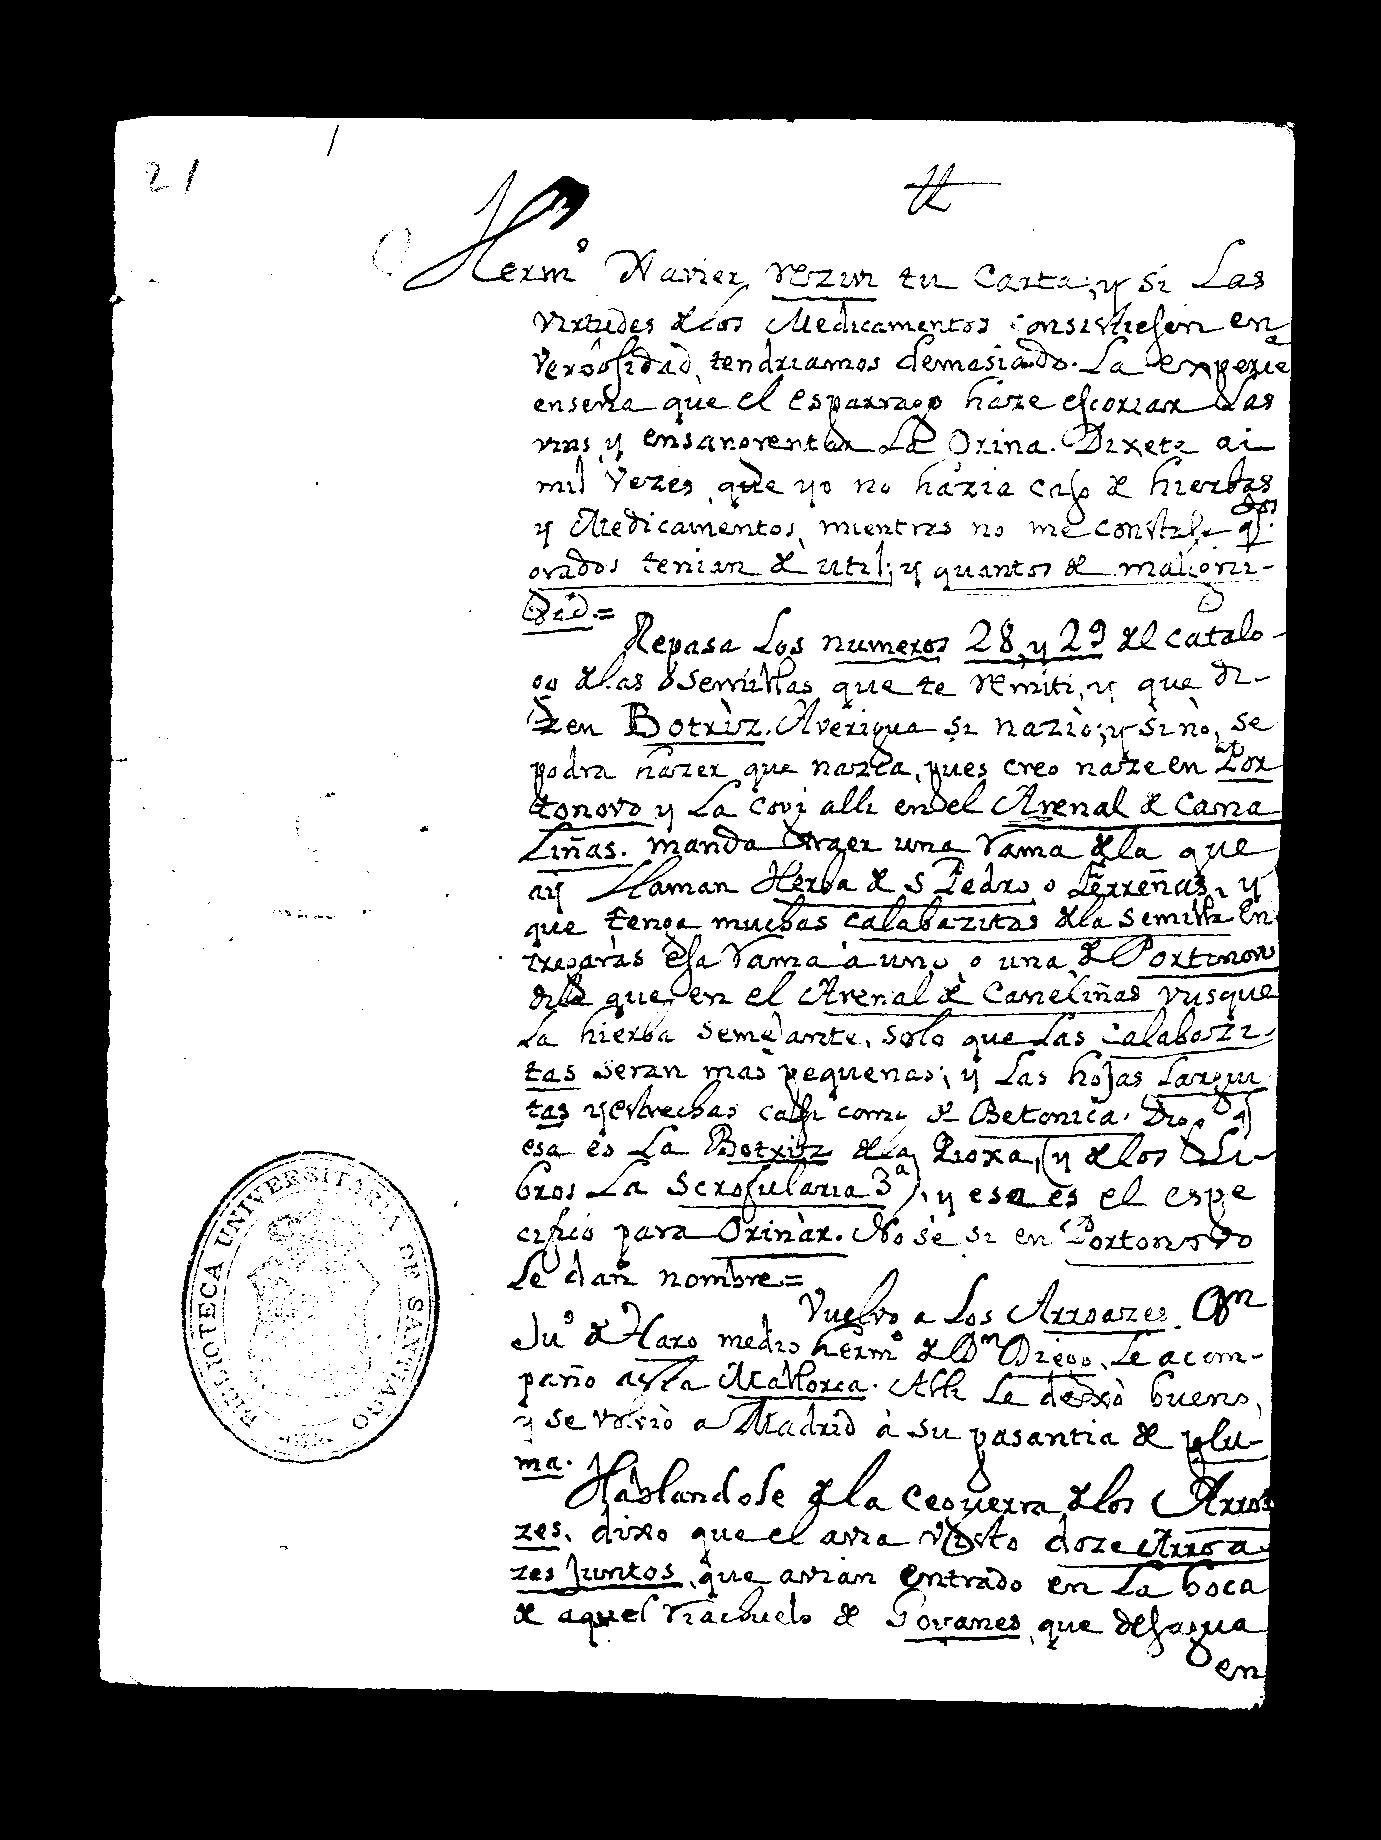 21
Herm.º Xavier, rezivi tu Carta; y si Las
virtudes de los Medicamentos consistiesen en
Verbosidad, tendriamos demasiado. La experiẽ
enseña que el esparrago haze escoriar Las
vias y ensangrentar La Orina. Dixete ai
mil Vezes, que yo no hazia caso de hierbas
y Medicamentos, mientras no me constase qtos.
grados tenian de util; y quantos de maligni-
dad.=
Repasa Los numeros 28, y 29 del Catalo-
go de las Semillas que te remiti, y que di-
zen Botriz. Averigua si naziò; y si nò, se
podra hazer que nazca, pues creo naze en Por
tonovo y La Coxi alli en el Arenal de Cana
Liñas. manda Coxer una rama de la que
ay Llaman Herba de S Pedro o Perreñas, y
que tenga muchas calabazitas de la semilla En
tregaràs esa rama à uno, o una de Portonovo
dile que en el Arenal de Caneliñas vusque
La hierba semejante, solo que Las Calabazi-
tas seran mas pequeñas; y Las hojas Largui
tas y estrechas casi como de Betonica. Digo q
esa es La Botriz de la Rioxa, (y de los Li-
bros La Scrofularia 3ª), y esa es el espe
cifico para Orinàr. No sè si en Portonovo
Le dan nombre=
Vuelvo a Los Arroazes. Dn
Juº de Haro medio hermº de Dn Diego, Le acom-
pañò asta Mallorca. Alli Le dexò bueno,
y se volviò a Madrid à su pasantia de plu-
ma.
Hablandose de la Ceguerra de los Arroa
zes, dixo que el avia visto doze Arroa-
zes juntos, que avian entrado en La boca
de aquel riachuelo de Govanes, que desagua
en
BIBLIOTECA UNIVERSITARIA DE SANTIAGO